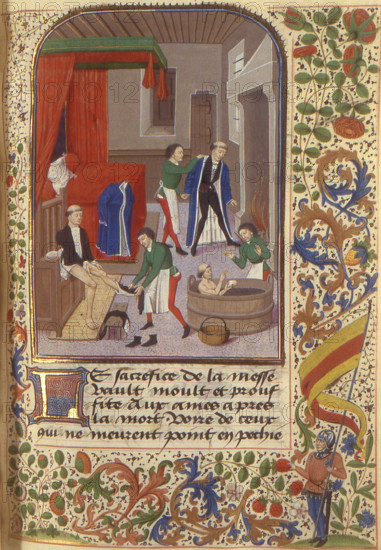 Le sacrefice de la messe
vault moult et prouf
fite aux ames apres
la mort voire de ceux
qui ne meurent point en pechie
PHOTO12